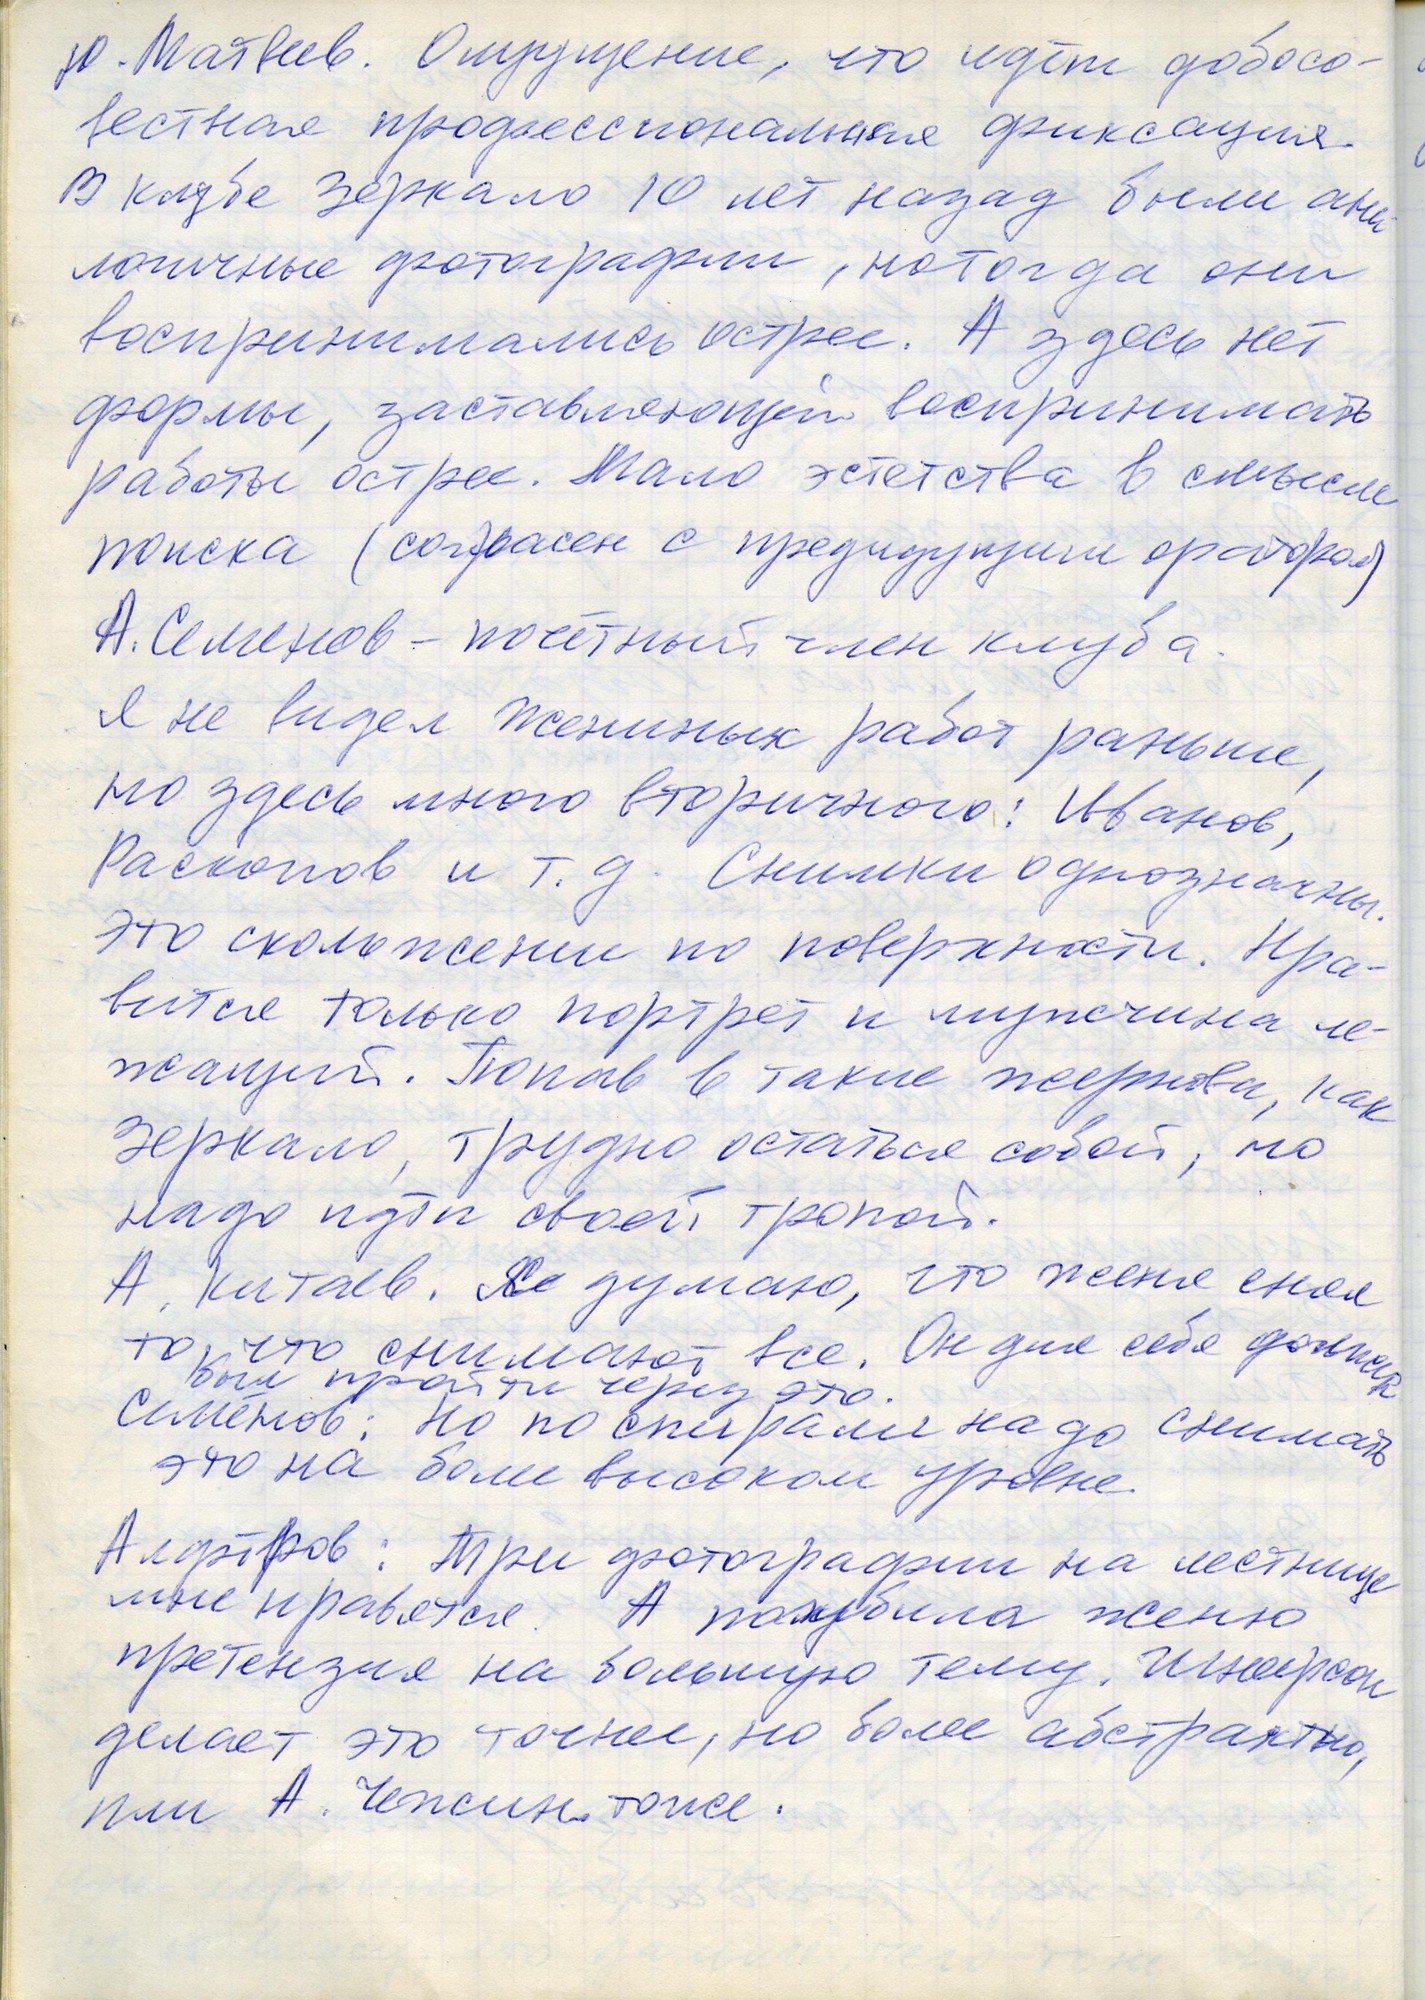 Ю. Матвеев. Ощущение, что идёт добосо-
вестная профессиональная фиксация.
В клубе Зеркало 10 лет назад были ана-
логичные фотографии, но тогда они
воспринимались острее. А здесь нет
формы, заставляющей воспринимать
работы острее. Мало эстетства в смысле
поиска (согласен с предидущим оратором)
А. Семенов – почётный член клуба.
Я не видел Жениных работ раньше,
но здесь много вторичного: Иванов,
Раскопов и т.д. Снимки однозначны.
Это скольжении по поверхности. Нра-
вится только портрет и мужчина ле-
жащий. Попав в такие жернова, как
Зеркало, трудно остаться собой, но
надо идти своей тропой.
А. Китаев. Я думаю, что Женя снял
то, что снимают все. Он для себя должен
был пройти через это.
Семёнов: Но по спирали надо снимать
это на боле высоком уровне.
Алфёров: Три фотографии на лестнице
мне нравятся. А погубила Женю
претензия на большую тему.
делает это точнее, но более абстрактно,
или А. Чежин тоже.